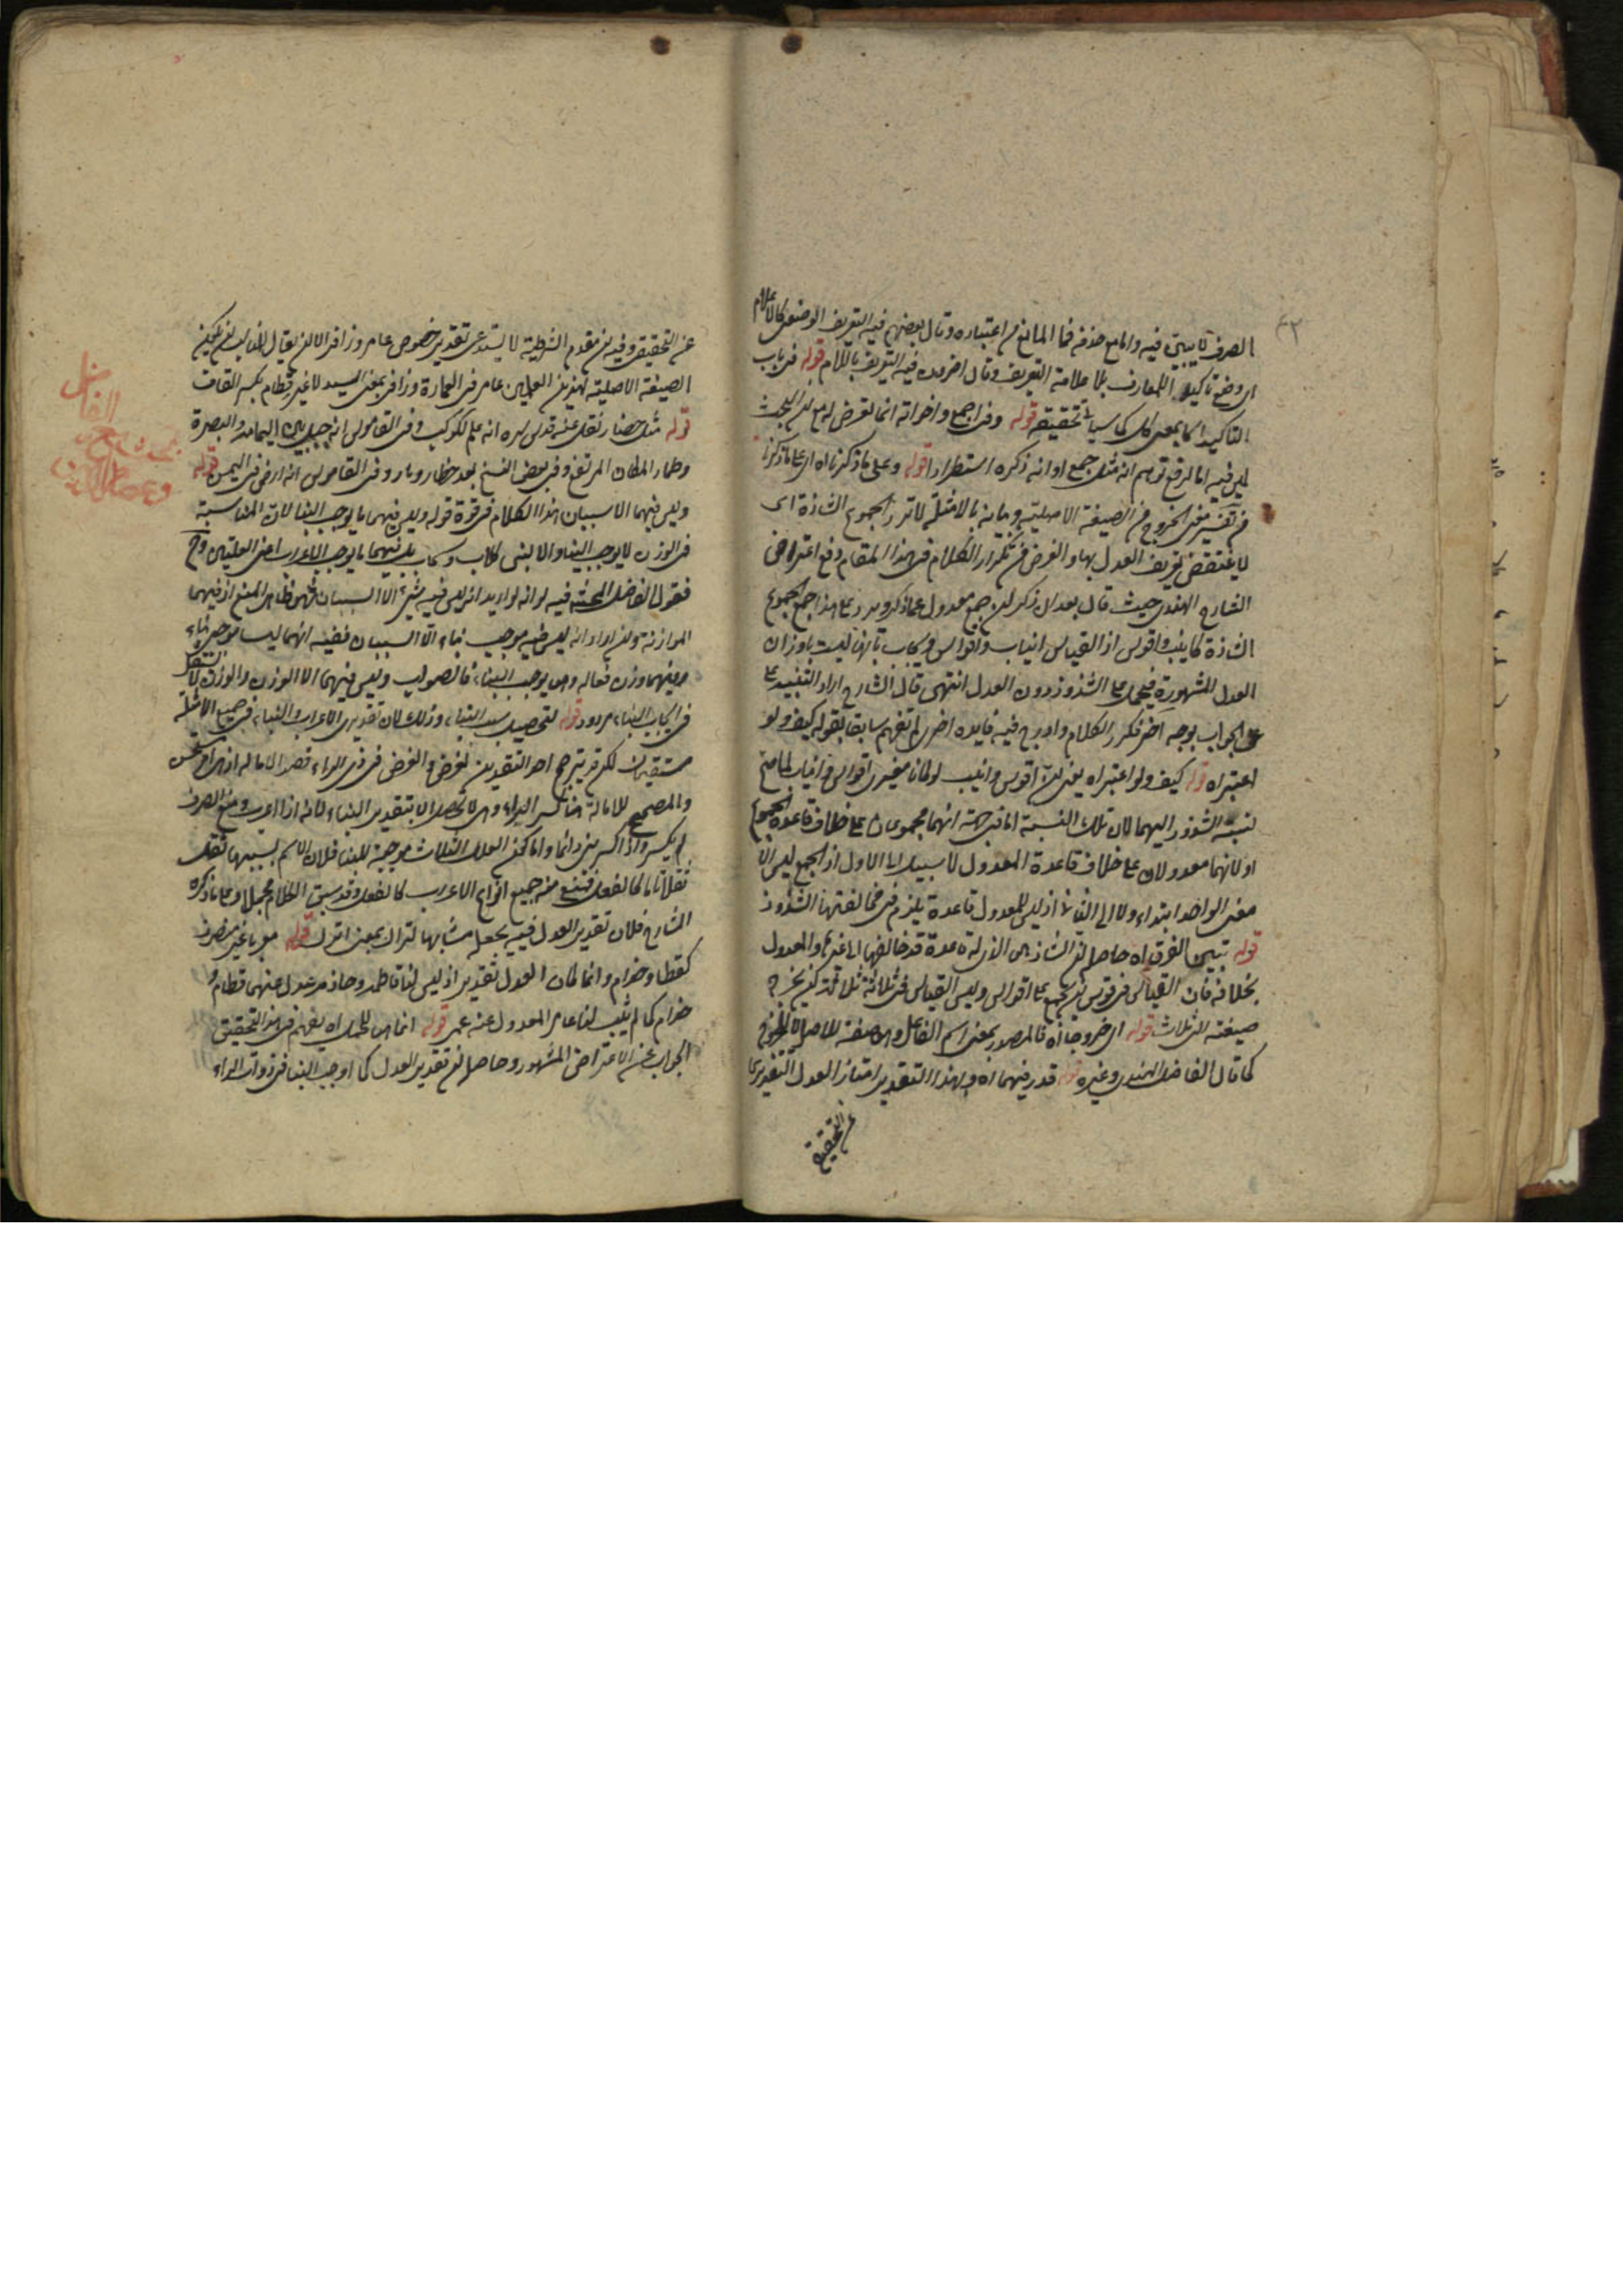 الصرف فيه والمانع حذفه فما المانع من اعتباره وقال بعضهم فيه التعريف الوضعي كالاعلام
اى وضع تاكيدا للمعارف بلا علامة التعريف وقال اخرون فيه التعريف باللام قوله فى باب
التاكيد اى بمعنى كل كما سياتى تحقيقه قوله وفى اجمع واخواته انما تعرض له مع ان البحث
ليس فيه اما لرفع توهم انه مثل جمع او انه ذكره استطرادا قوله وعلى ما ذكرنا اه اى على ما ذكرنا
من تفسير الخروج عن الصيغة الاصلية بالامثلة لا ترد الجموع الشاذة اى
لا ينتقض تعريف العدل بها والغرض من تكرار الكلام فى هذا المقام دفع اعتراض
الشارح الهندى حيث قال بعد ان ذكر ان جمع معدول عما ذكر ويرد على هذا جمع الجموع
الشاذة كانيب واقوس اذ القياس انياب واقواس ويجاب بانها ليست باوزان
العدل المشهورة فيحمل على الشذوذ دون العدل انتهى قال الشارح اراد التنبيه على
الجواب بوجه اخر فكرر الكلام وادرج فيه فايده اخرى لم تفهم سابقا بقوله كيف ولو
اعتبر اه قوله كيف ولو اعتبر اه يعنى ان اقوس وانيب لو كانا مغيرى اقواس وانياب لما صح
نسبة الشذوذ اليهما لان تلك النسبة اما من جهة انهما مجموعان على خلاف قاعدة الجموع
او لانهما معدولان على خلاف قاعدة المعدول لا سبيل الى الاول اذ الجمع ليس الا
مغير الواحد ابتداء ولا الى الثانى اذ ليس للمعدول قاعدة يلزم فى مخالفتها الشذوذ
قوله تبيين الفرق اه حاصله ان الشاذ هى الذى له قاعدة قد خالفها الى غيرها والمعدول
بخلافه فان القياس فى قوس ان يجمع على اقواس وليس القياس فى ثلاثة ثلاثة ان يخرج
صيغته الى ثلاث قوله اى خروجا اه فالمصدر بمعنى اسم الفاعل وهى صفة للاصل لا للخروج
كما قال الفاضل الهندى وغيره قوله قدر فيهما اه وبهذا التقدير امتاز العدل التقديرى
عن التحقيقى
عن التحقيقى وفيه ان مقدم الشرطية لا يستدعى تقدير خصوص عامر وزافر الا ان يقال
الصيغة الاصلية لهذين العلمين عامر من العمارة وزافر بمعنى السيد لا غير قطام بكسر القاف
قوله مثل حضار نقل عنه قدس سره انه علم لكوكب وفى القاموس انه جبل بين اليمامة والبصرة
وطمار المكان المرتفع وفى بعض النسخ بعد حضار وبار وفى القاموس انه ارض فى اليمن قوله
وليس فيهما الا سببان هذا الكلام فى قوة قوله وليس فيهما ما يوجب البناء لان المناسبة
فى الوزن لا يوجب البناء والا لبنى كلاب وسحاب بل فيهما ما يوجب الاعراب اعنى العلتين وح
فقول الفاضل المحشى فيه انه لو اريد انه ليس فيه شئ الا السببان فهو ظاهر المنع اذ فيهما
الموازنة وان اراد انه ليس فيه موجب بناء الا السببان ففيه انهما ليسا موجبى بناء
وفيهما وزن فعال وهى يوجب البناء فالصواب وليس فيهما الا الوزن والوزن لا يستقل
فى ايجاب البناء مردود قوله لتحصيل سبب البناء وذلك لان تقديرى الاعراب والبناء فى جميع الامثلة
مستقيمان لكن قد يترجح احد التقديرين لغرض والغرض فى ذى الراء قصد الامالة
والمصحح للامالة هنا كسر الراء وهى لا تحصل الا بتقدير البناء لانه اذا اعرب ومنع الصرف
لم يكسر واذا كسر بنى دائما واما كون العلل الثلاث موجبة للبناء فلان الاسم بسببها ثقل
ثقلا تاما كالفعل فمنع منه جميع انواع الاعراب كالفعل وقد سبق الكلام مجملا وعلى ما ذكره
الشارح فلان تقدير العدل فيه يجعله مشابها لنزال بمعنى انزل قوله معربا غير منصرف
كقطام وحذام وانما كان العدل تقديرا اذ ليس لنا قاطمه وحاذمه عدل عنهما قطام و
حذام كما لم يثبت لنا عامر المعدول عنه عمر قوله انما هى للحمل اه يفهم من هذا التحقيق
الجواب عن الاعتراض المشهور وحاصله ان تقدير العدل كما اوجب البناء فى ذوات الراء